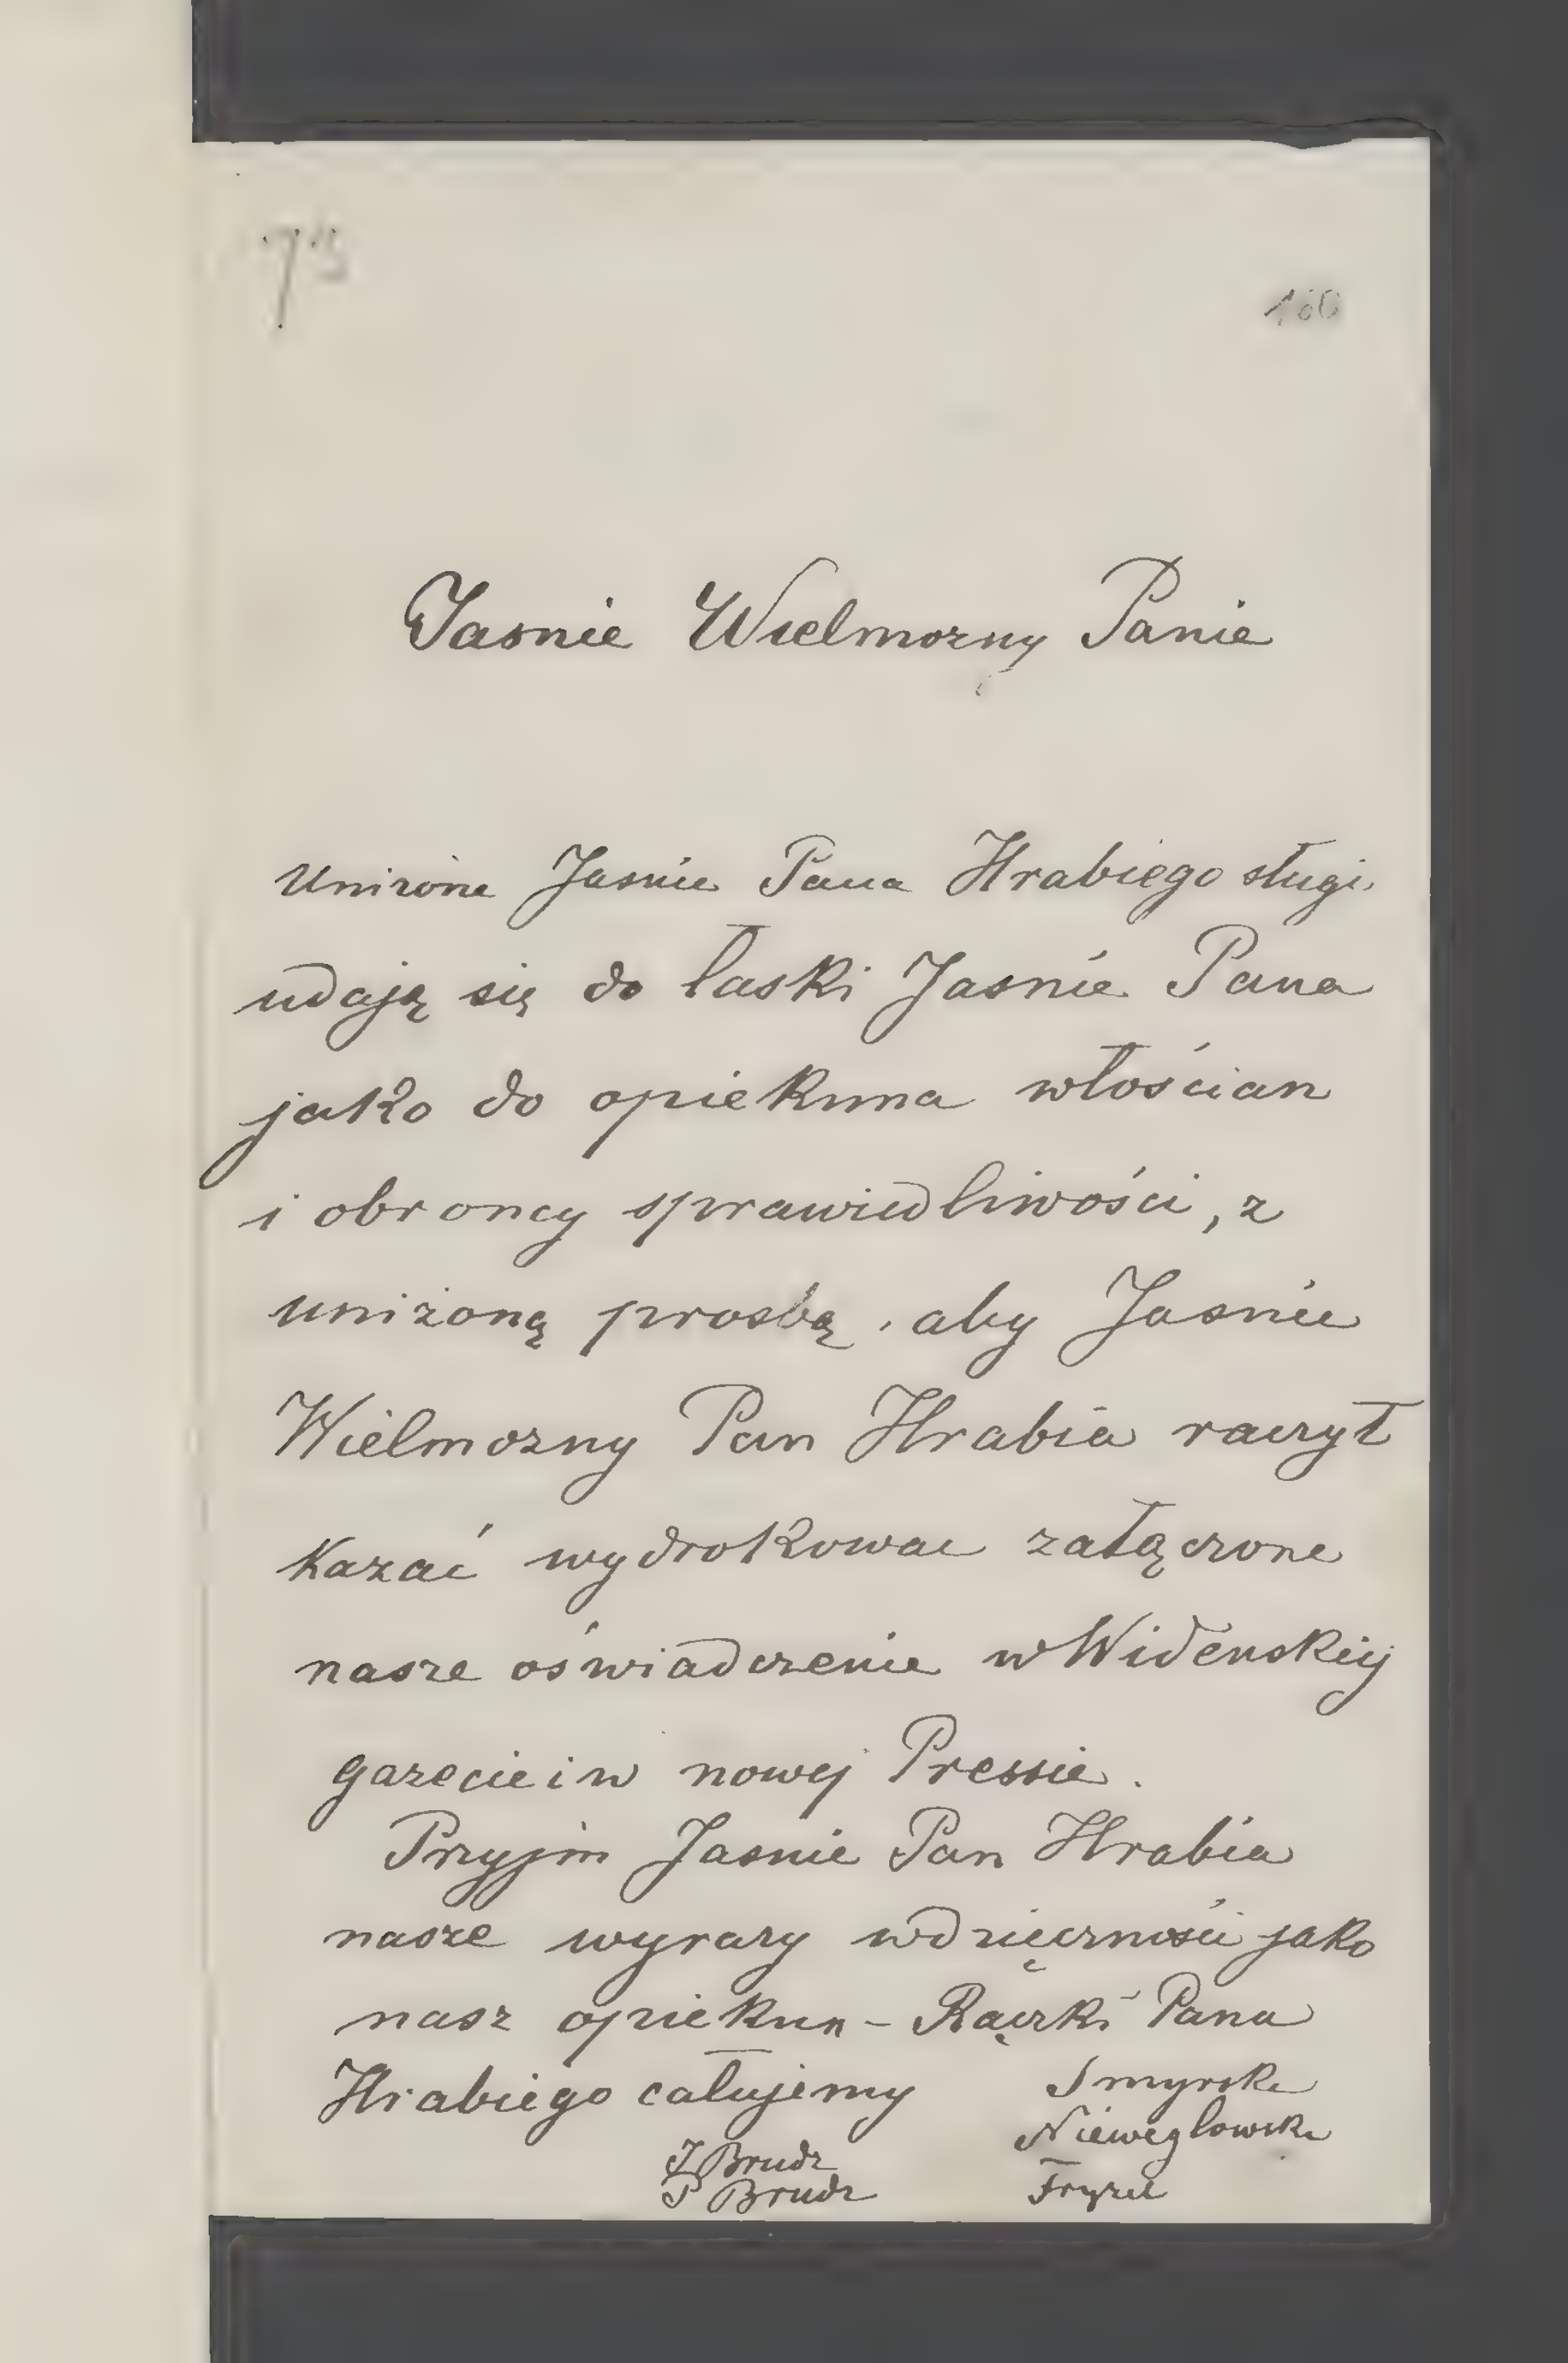 73
160
Jasnie Wielmozny Panie
Unizone Jasnie Pana Hrabiego sługi
udają się do łaski Jasnie Pana
jako do opiekuna włościan
i obroncy sprawiedliwości, z
uniżoną prosbą, aby Jasnie
Wielmozny Pan Hrabia raczył
Kazać wydrokowac załączone
nasze oświadczenie w Widenskiej
gazecie i w nowej Pressie.
Przyjm Jasnie Pan Hrabia
nasze wyrazy wdzięczności jako
nasz opiekun - Rączki Pana
Hrabiego całujemy
Smyrska
Nieweglowska
J Brudz
P Brudz